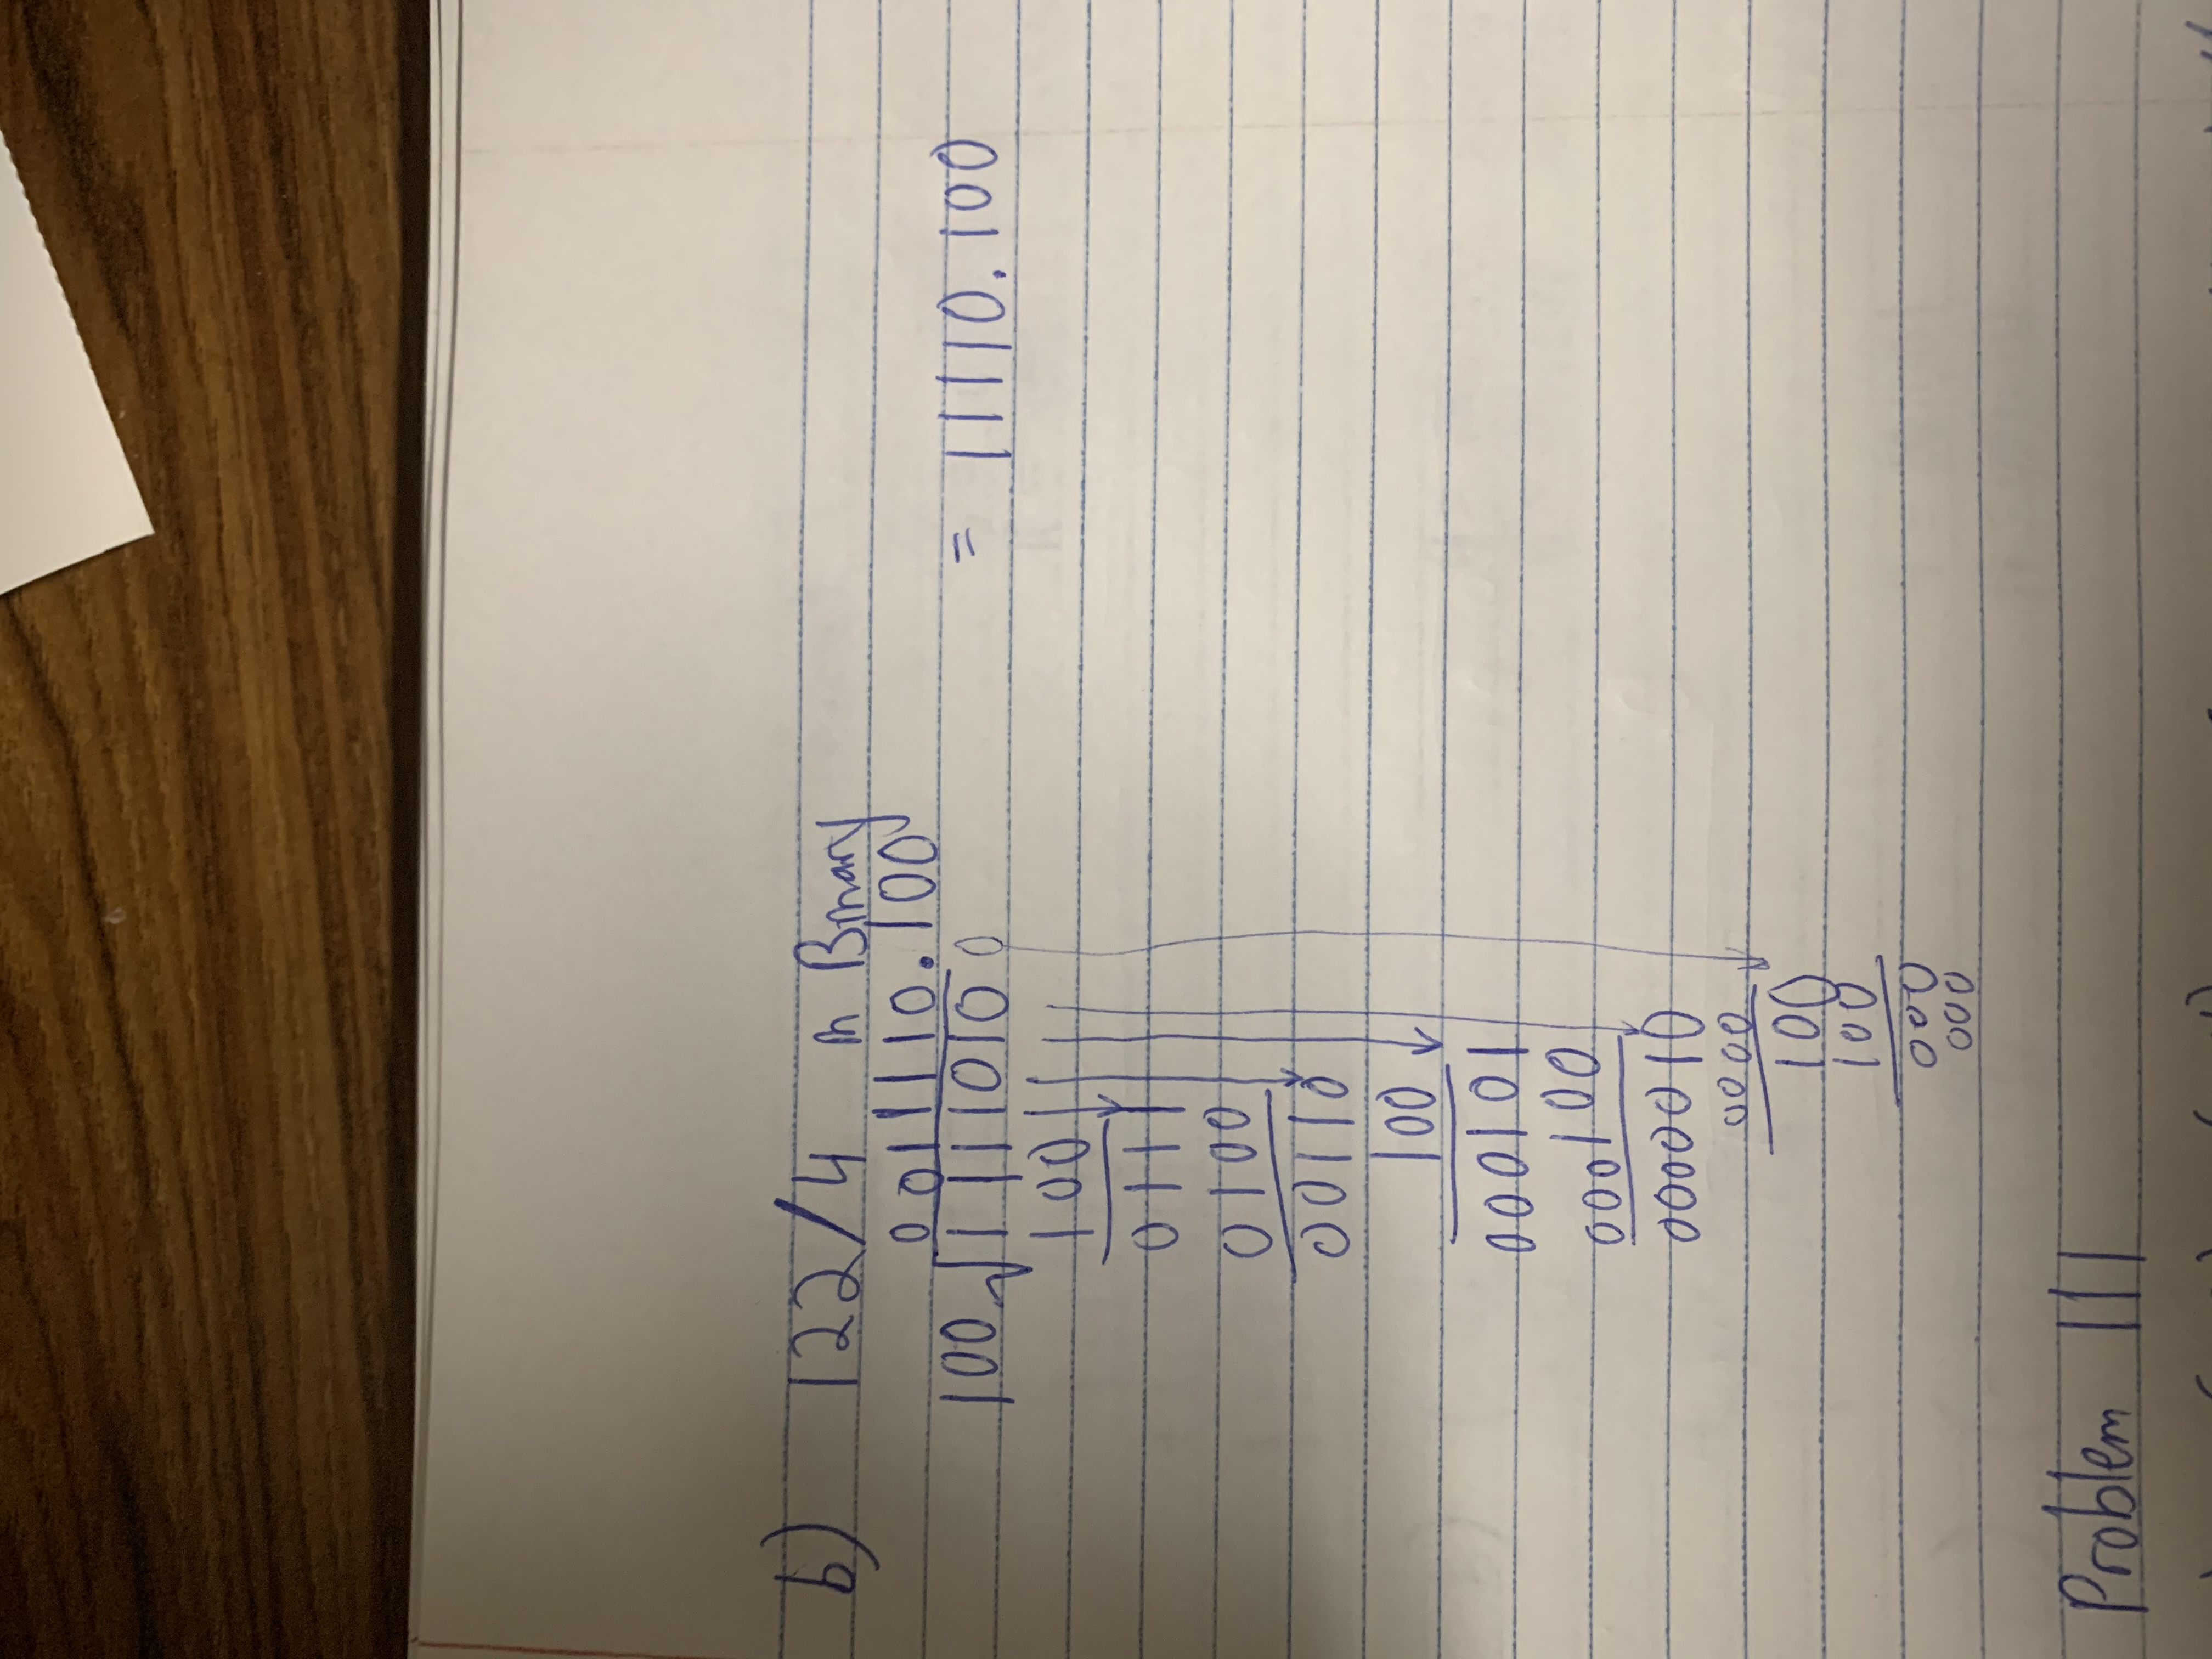 b) 122/4 in Binary
0011110.100
100 √11110100 = 11110.100
100
0111
0100
00110
100
000101
000100
0000010
0000
100
100
000
000
Problem III